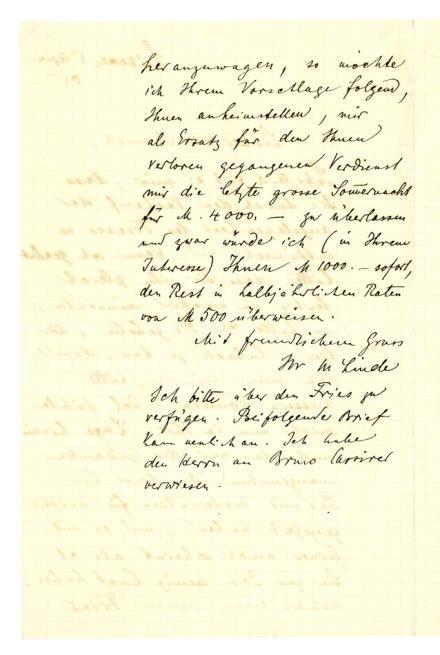 heranzuwagen, so möchte
ich Ihrem Vorschlage folgend,
Ihnen anheimstellen, mir
als Ersatz für den Ihnen
verloren gegangenen Verdienst
mir die letzte grosse Som̅ernacht
für M. 4000. — zu überlassen
und zwar würde ich (in Ihrem
Interesse) Ihnen M 1000. — sofort,
den Rest in halbjährlichen Raten
von M 500 überweisen.
Mit freundlichem Gruss
Ihr M Linde
Ich bitte über den Fries zu
verfügen. Beifolgender Brief
kam neulich an. Ich habe
den Herrn an Bruno Cassirer
verwiesen.